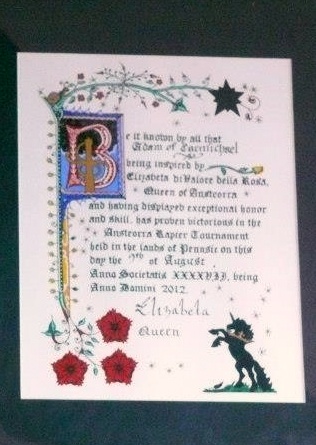 Be it known by all that
Adam of Carmichael
being inspired by
Elizabeta di Valore della Rosa,
Queen of Ansteorra
and having displayed exceptional honor
and skill, has proven victorious in the
Ansteorra Rapier Tournament
held in the lands of Pennsic on this
day the of August
Anno Societatis XXXXVII, being
Anno Domini 2012.
Elizabeta
Queen